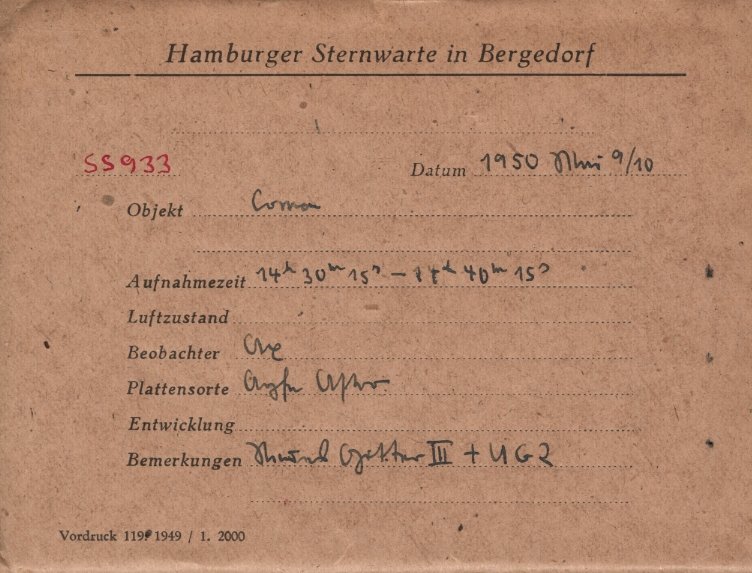 Hamburger Sternwarte in Bergedorf
SS933 Datum 1950 Mai 9/10
Objekt Coma
Aufnahmezeit 14ʰ 30ᵐ 15ˢ — 40ᵐ 15ˢ
Luftzustand
Beobachter
Plattensorte Agfa Astro
Entwicklung
Bemerkungen Gitter III + UG2
Vordruck 1949 / 1. 2000